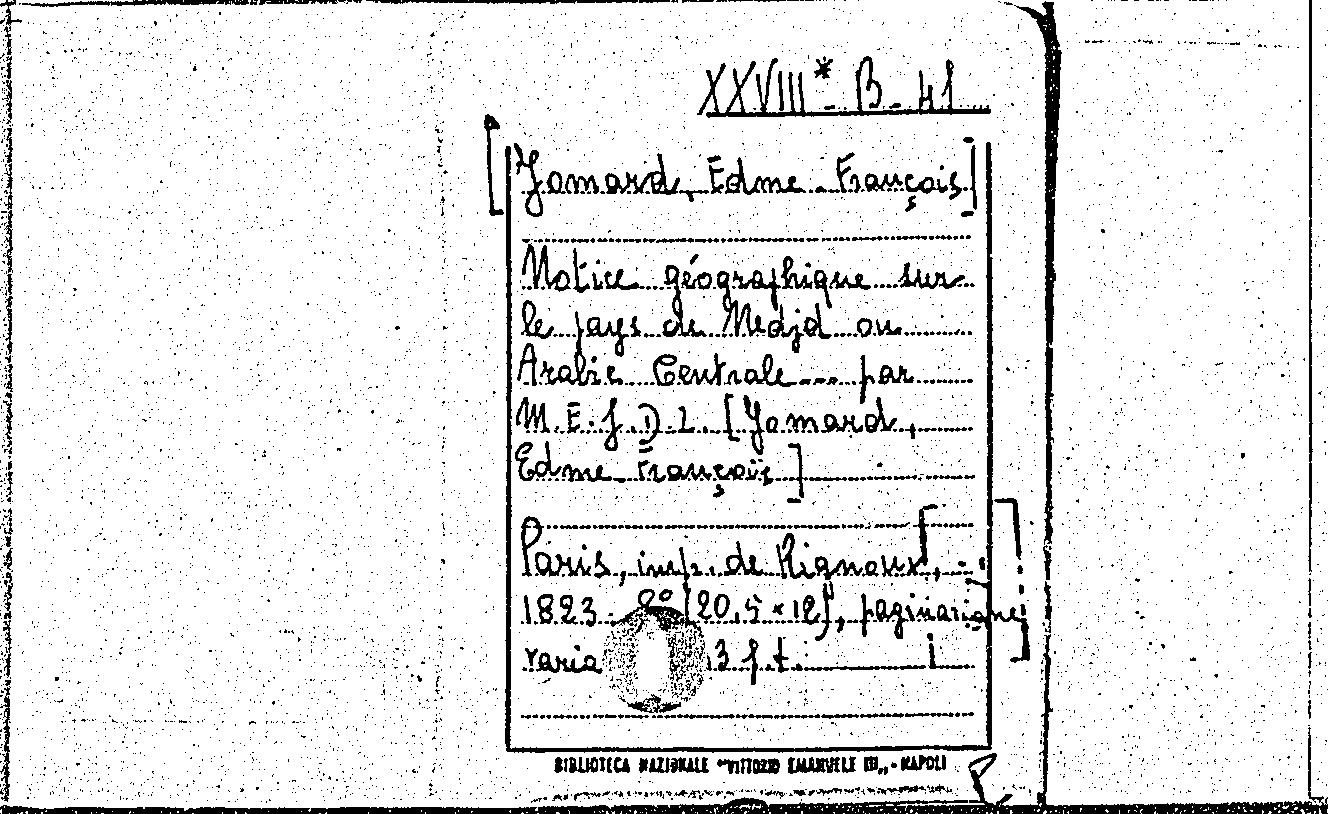 XXVIII* - B - 41
[Jomard, Edme - François]
Notice géographique sur
le pays de Nedjd ou
Arabie Centrale --- par
M. E. J. D. L. [Jomard,
Edme - François]
Paris, imp. de Rignoux,
1823 - 8° (20,5 × 12), paginazione
varia 3 f. t.
BIBLIOTECA NAZIONALE "VITTORIO EMANUELE III" - NAPOLI